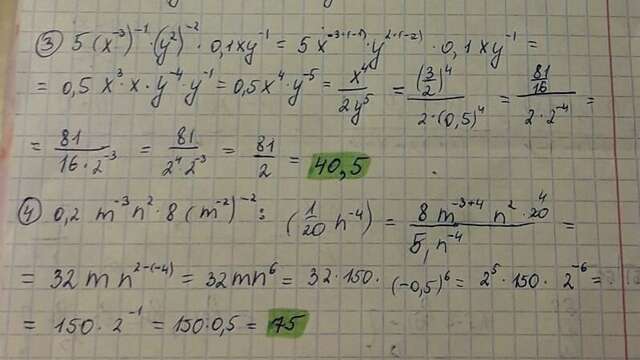 ③ 5(x⁻³)⁻¹·(y²)⁻²·0,1xy⁻¹ = 5x⁻³·⁽⁻¹⁾·y²·⁽⁻²⁾·0,1xy⁻¹ =
= 0,5x³·x·y⁻⁴·y⁻¹ = 0,5x⁴·y⁻⁵ = x⁴/2y⁵ = (3/2)⁴/2·(0,5)⁴ = 81/16/2·2⁻⁴ =
= 81/16·2⁻³ = 81/2⁴·2⁻³ = 81/2 = 40,5
④ 0,2 m⁻³n²·8(m⁻²)⁻² : (1/20 n⁻⁴) = 8m⁻³⁺⁴ n²·20⁴/5, n⁻⁴ =
= 32mn²⁻⁽⁻⁴⁾ = 32mn⁶ = 32·150·(-0,5)⁶ = 2⁵·150·2⁻⁶ =
= 150·2⁻¹ = 150·0,5 = 75